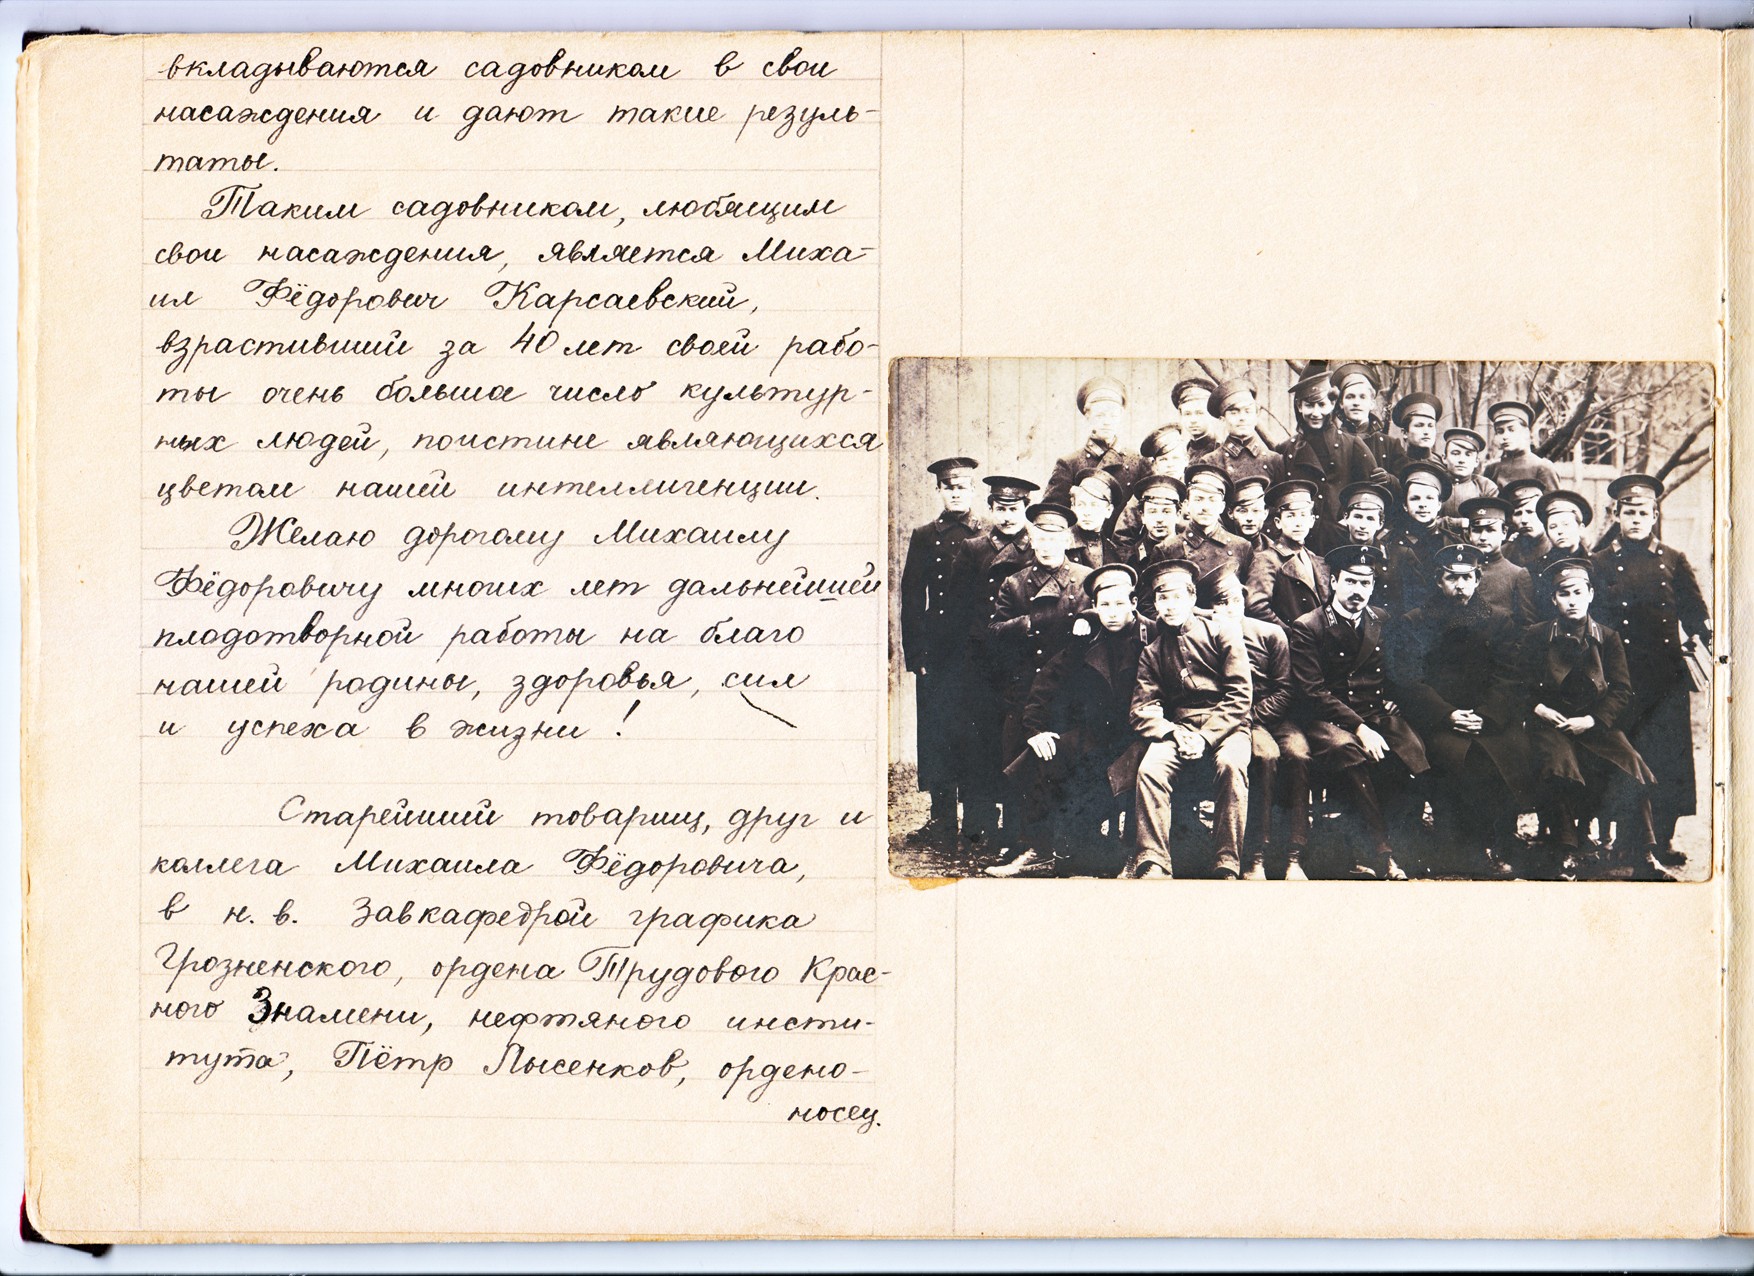 вкладываются садовником в свои
насаждения и дают такие резуль-
таты.
Таким садовником, любящим
свои насаждения, является Миха-
ил Фёдорович Карсаевский,
взрастивший за 40 лет своей рабо-
ты очень большое число культур-
ных людей, поистине являющихся
цветом нашей интеллигенции.
Желаю дорогому Михаилу
Фёдоровичу многих лет дальнейшей
плодотворной работы на благо
нашей родины, здоровья, сил
и успеха в жизни!
Старейший товарищ, друг и
коллега Михаила Фёдоровича,
в н. в. Завкафедрой графика
Грозненского, ордена Трудового Крас-
ного Знамени, нефтяного инсти-
тута, Пётр Лысенков, ордено-
носец.